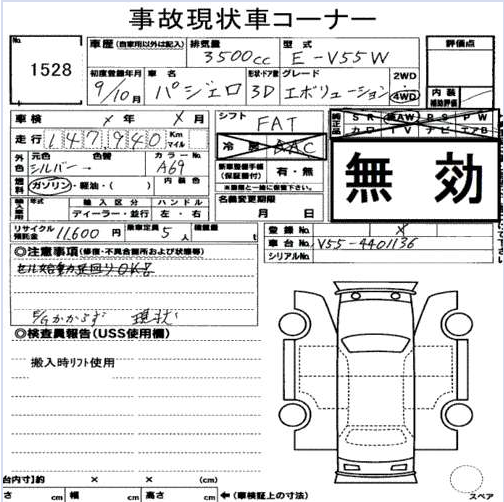 事故現状車コーナー
No.
1528
車歴(自家用以外は記入)
排気量
3500cc
型式
E-V55W
評価点
初度登録年月
9/10月
車名
パジェロ
形状・ドア数
3D
グレード
エボリューション
2WD
4WD
内装
補助評価
車検 × 年 × 月
シフト
FAT
純正品
SR 横AW PS PW
カワ TV ナビ エアB
走行 147,940 Km
マイル
冷房 AAC
無効
外色
元色
シルバー
色替
カラーNo.
A69
新車整備手帳
(保証書付)
有・無
※書類と一緒に保管下さい。
燃料
ガソリン・軽油・( )
内装色
名義変更期限
月 日
輸入車用
年式
輸入区分
ディーラー・並行
ハンドル
左・右
リサイクル
預託金
11,600円
乗車定員
5人
積載量
t
登録No.
車台No. V55-4401136
シリアルNo.
◎注意事項(修復・不具合箇所および状態等)
E/Gかからず 現状
◎検査員報告(USS使用欄)
搬入時リフト使用
台内寸)約 × × (cm)
さ cm 幅 cm 高さ cm ←(車検証上の寸法)
スペア